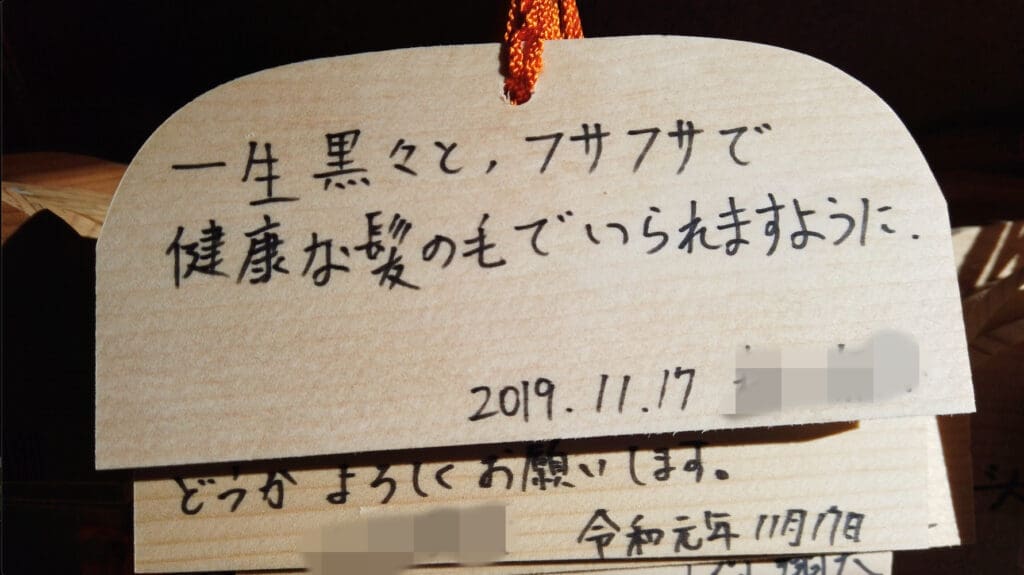 一生黒々と,フサフサで
健康な髪の毛でいられますように.
2019.11.17
どうかよろしくお願いします。
令和元年11月17日